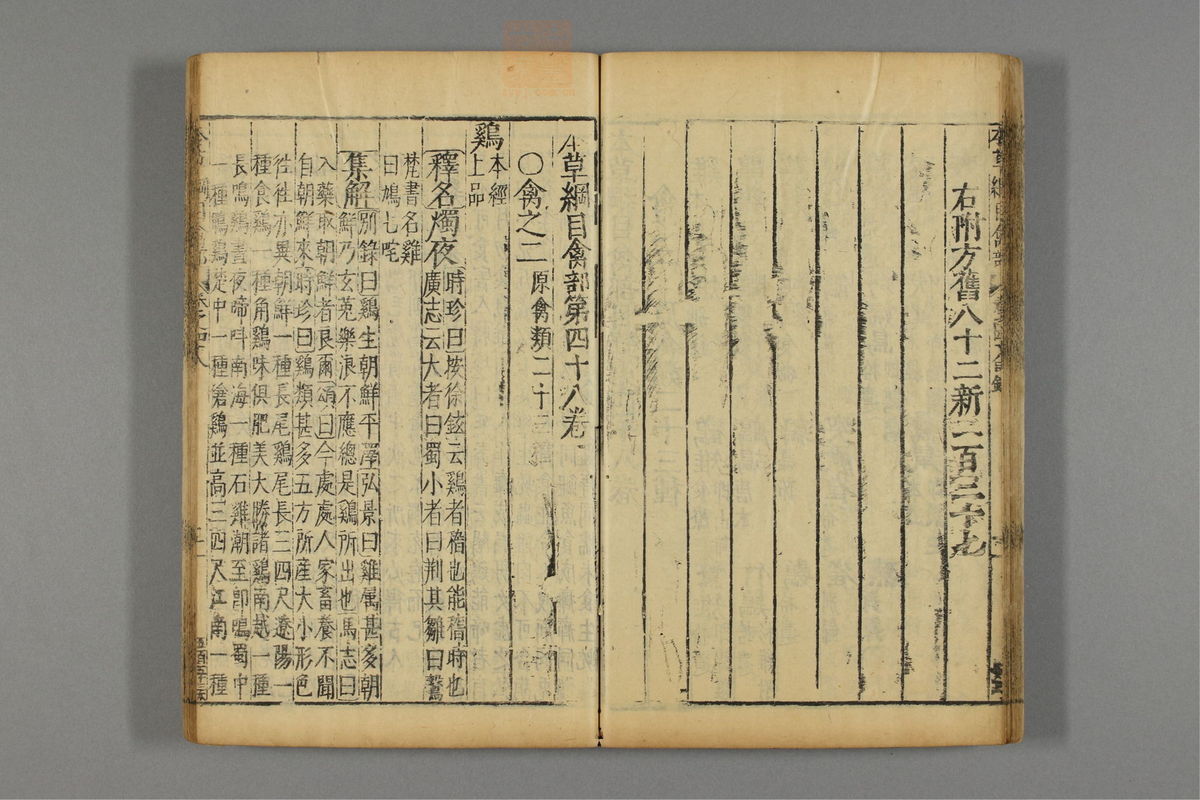 右附方舊八十二新二百三十九
本草綱目禽部第四十八卷
○禽之二原禽類二十三種
鷄本經上品
釋名燭夜時珍曰按徐鉉云鷄者稽也能稽時也
廣志云大者曰蜀小者曰荆其雛曰鷇
梵書名雞曰鳩七咤
集解别錄曰鷄生朝鮮平澤弘景曰雞属甚多朝
鮮乃玄菟樂浪不應總是鷄所出也馬志曰
入藥取朝鮮者良爾頌曰今處處人家畜養不聞
自朝鮮來時珍曰鷄類甚多五方所産大小形色
徃徃亦異朝鮮一種長尾鷄尾長三四尺遼陽一
種食鷄一種角鷄味俱肥美大勝諸鷄南越一種
長鳴鷄晝夜啼叫南海一種石雞潮至卽鳴蜀中
一種鶤鷄楚中一種傖鷄並高三四尺江南一種